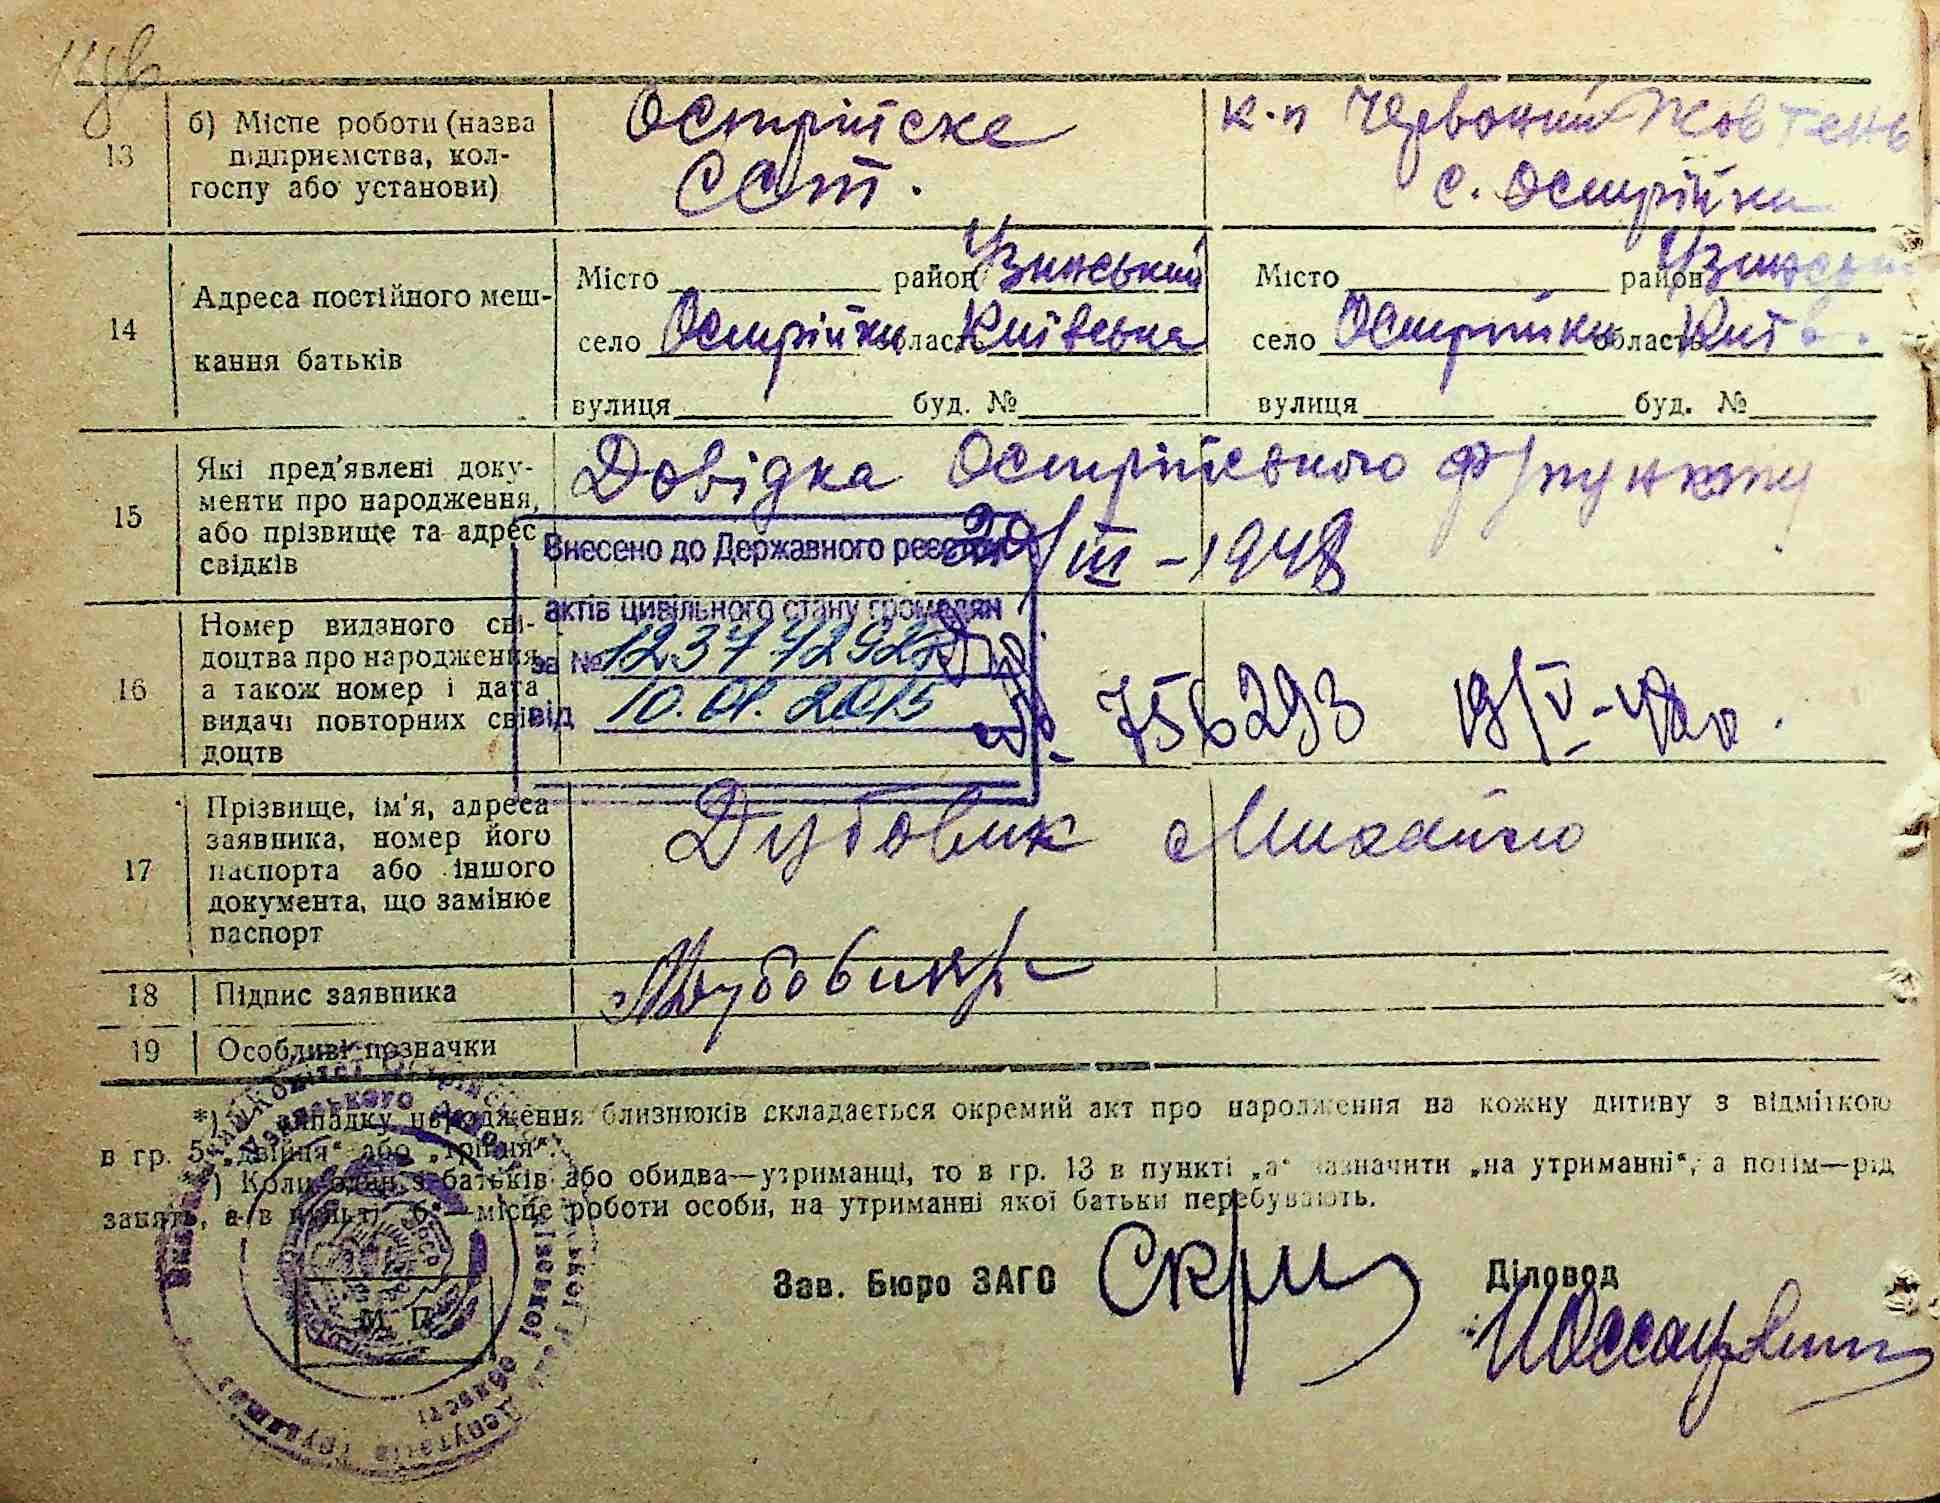 13
б) Місце роботи (назва
підприємства, кол-
госпу або установи)
Острійске
ССТ.
к-п Червоний Жовтень
с. Острійки
14
Адреса постійного меш-
кання батьків
Місто район Узинський
село Острійки область Київська
вулиця буд. №
Місто район Узинський
село Острійки область Київ
вулиця буд. №
15
Які пред'явлені доку-
менти про народження,
або прізвище та адрес
свідків
Довідка Острійського ф/пункту
20/III - 1948
Внесено до Державного реєстру
актів цивільного стану громадян
за №
від 10.01.2015
16
Номер виданого сві-
доцтва про народження
а також номер і дата
видачі повторних сві-
доцтв
756293 19/V-48р.
17
Прізвище, ім'я, адреса
заявника, номер його
паспорта або іншого
документа, що замінює
паспорт
Дубовик Михайло
18
Підпис заявника
19
Особливі позначки
*) випадку народження близнюків складається окремий акт про народження на кожну дитину з відміткою
в гр. 5 „двійня“ або „трійня“.
) Коли один з батьків або обидва—утриманці, то в гр. 13 в пункті „а“ зазначити „на утриманні“, а потім—рід
занять, а в пункті „б“—місце роботи особи, на утриманні якої батьки перебувають.
Зав. Бюро ЗАГС
Діловод
М. П.